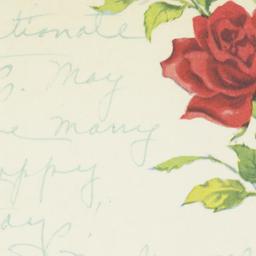 tionate
S. May
e many
appy
day